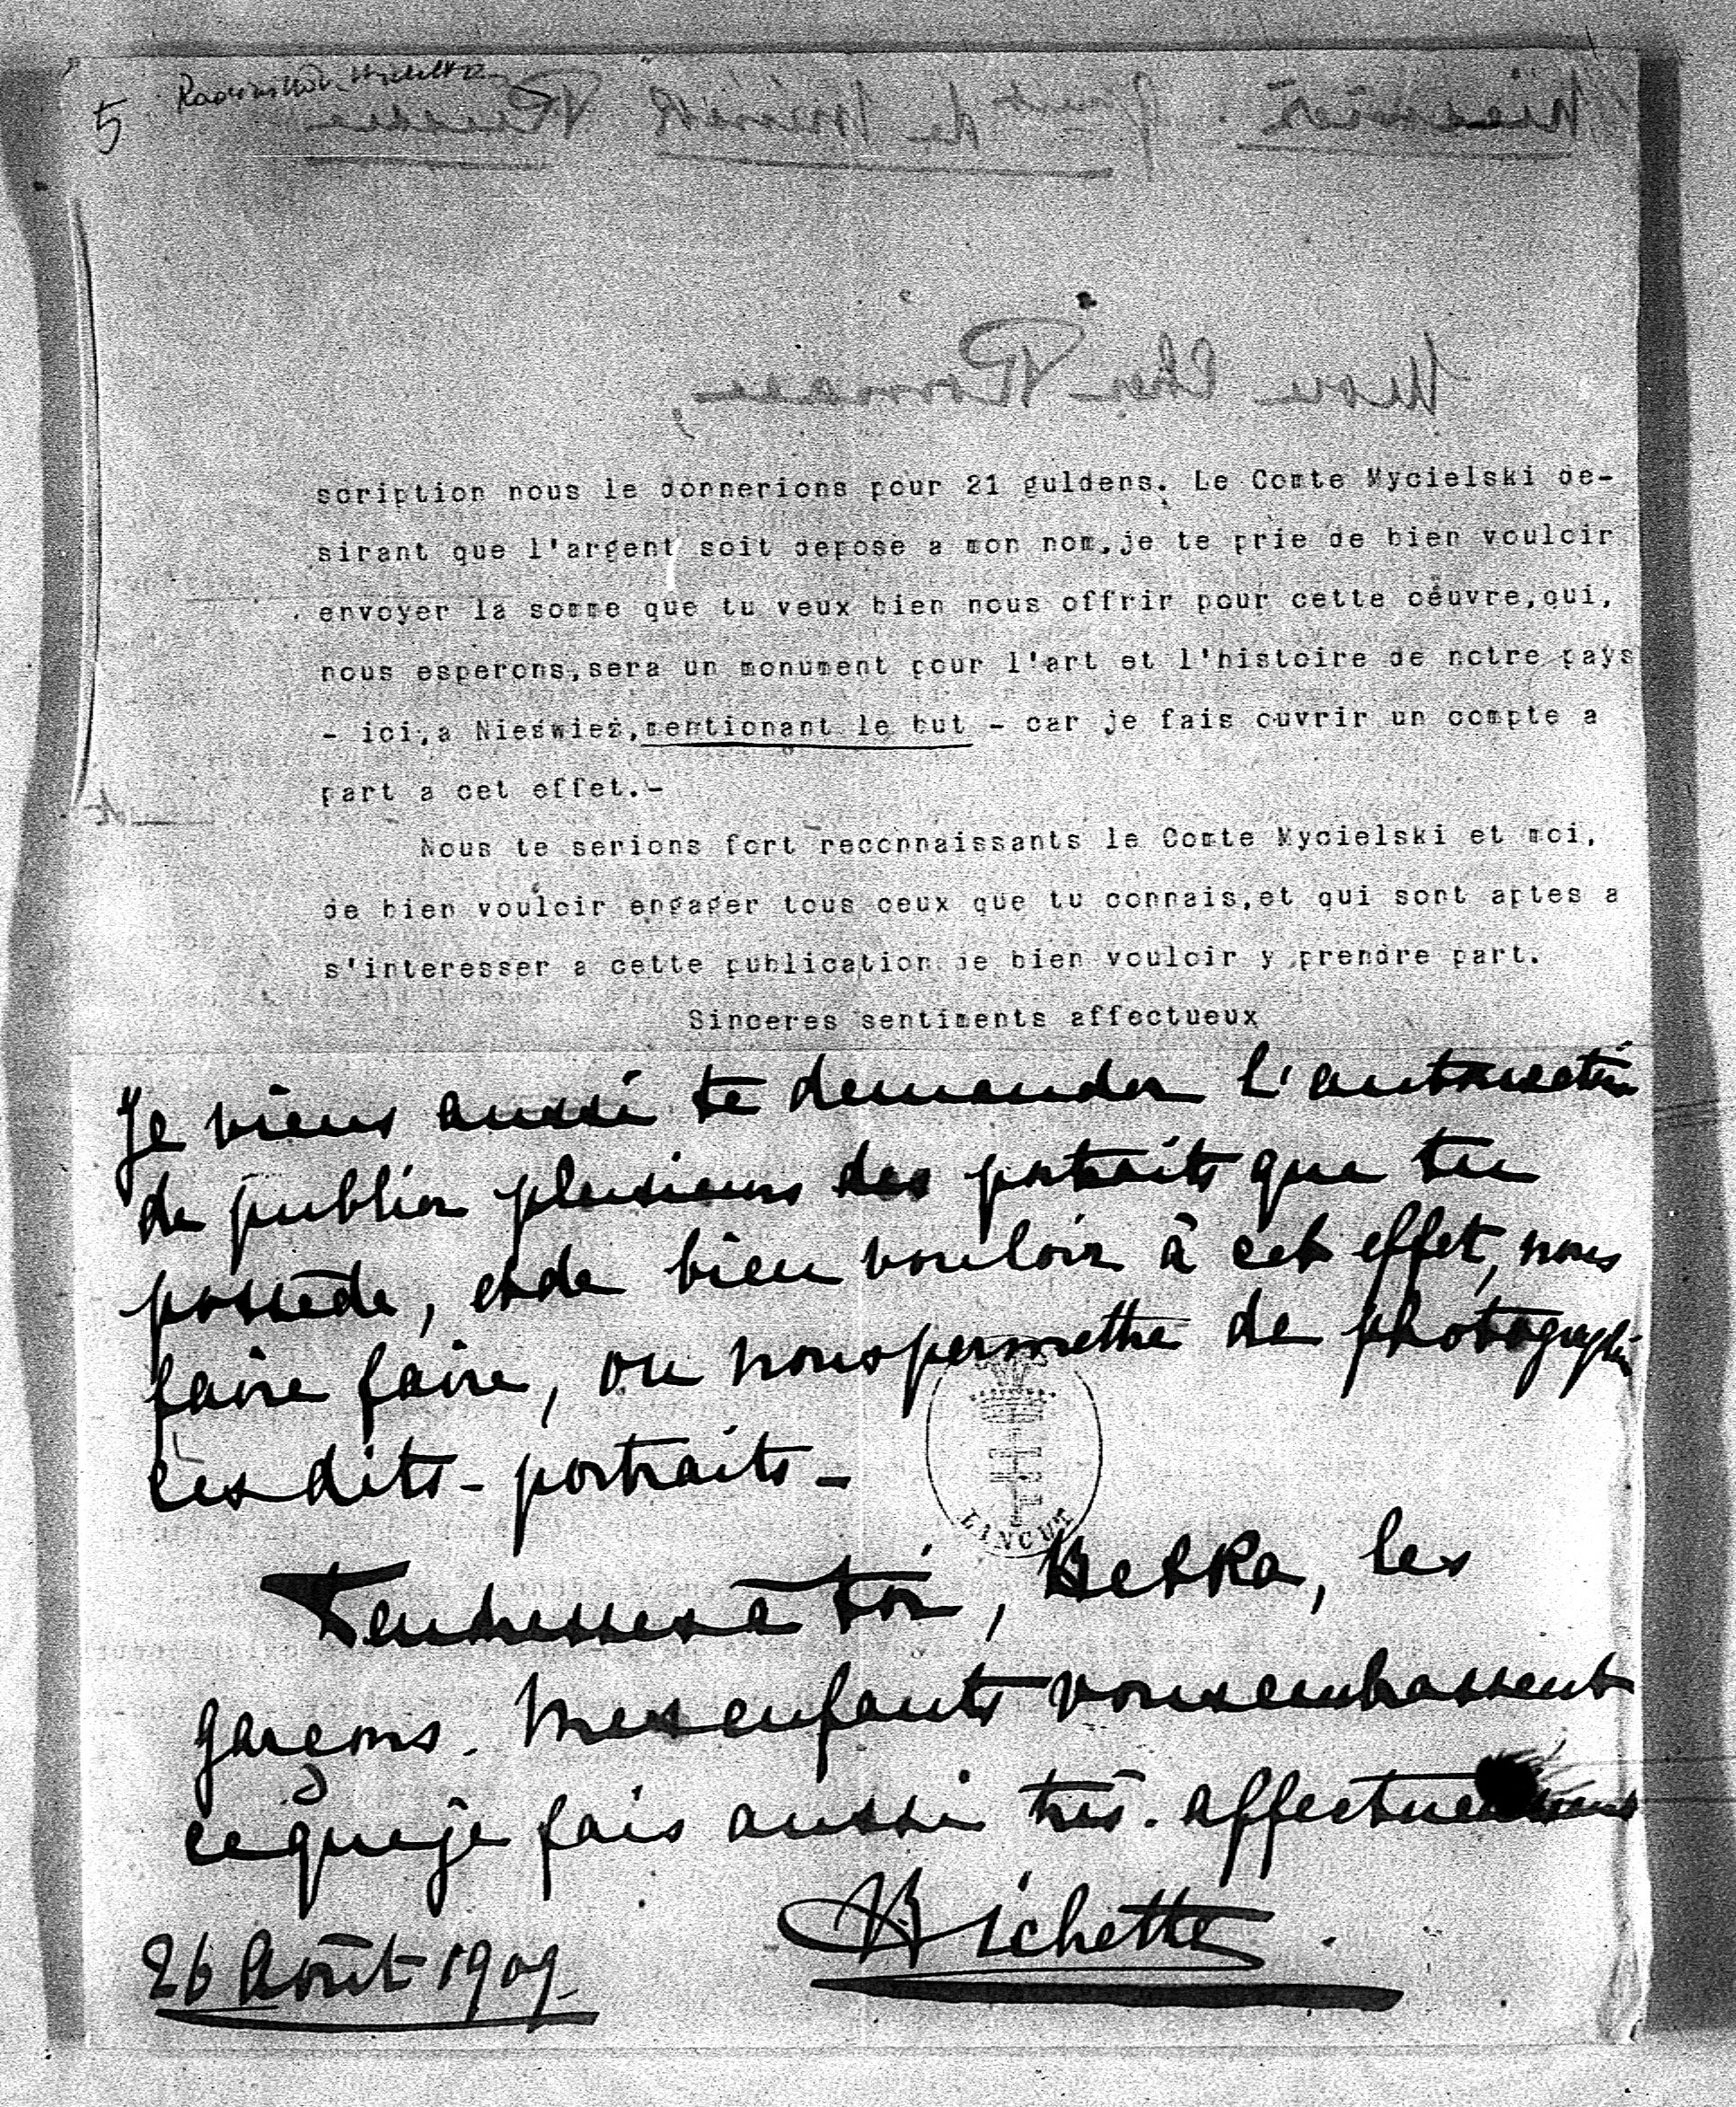 5
scription nous le donnerions pour 21 guldens. Le Comte Mycielski de-
sirant que l'argent soit depose a mon nom,je te prie de bien vouloir
envoyer la somme que tu veux bien nous offrir pour cette oeuvre,qui,
nous esperons,sera un monument pour l'art et l'histoire de notre pays
- ici,a Nieświeź,mentionant le but - car je fais ouvrir un compte a
part a cet effet.-
Nous te serions fort reconnaissants le Comte Mycielski et moi,
de bien vouloir engager tous ceux que tu connais,et qui sont aptes a
s'interesser a cette publication de bien vouloir y prendre part.
Sinceres sentiments affectueux
Je viens aussi te demander l'autorisation
de publier plusieurs des portraits que tu
possède, et de bien vouloir à cet effet, nous
faire faire, ou nous permettre de photographier
ces dits - portraits -
LANCUT
Tendresses à toi, Betka, les
garçons. Mes enfants vous embrassent
ce que je fais aussi très. affectueusement
Bichette.
26 Août 1909